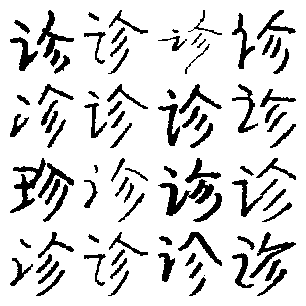 诊诊诊诊
诊诊诊诊
珍诊诊诊
诊诊诊诊